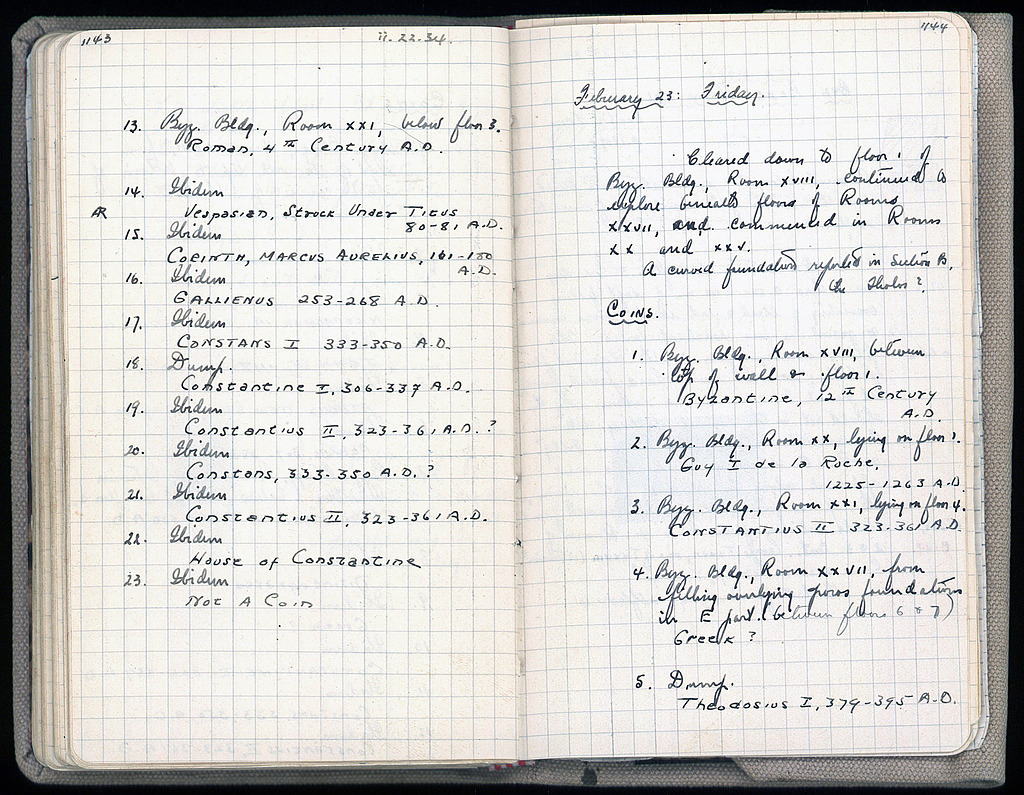 1143
II. 22. 34.
13. Byz. Bldg., Room XXI, below floor 3.
Roman, 4TH Century A.D.
14. Ibidem
AR Vespasian, Struck Under Titus
80-81 A.D.
15. Ibidem
CORINTH, MARCUS AURELIUS, 161-180
A.D.
16. Ibidem
GALLIENUS 253-268 A.D.
17. Ibidem
CONSTANS I 333-350 A.D.
18. Dump.
Constantine I, 306-337 A.D.
19. Ibidem
Constantius II, 323-361 A.D. ?
20. Ibidem
Constans, 333-350 A.D. ?
21. Ibidem
Constantius II, 323-361 A.D.
22. Ibidem
House of Constantine
23. Ibidem
Not A Coin
1144
February 23: Friday.
Cleared down to floor 1 of
Byz. Bldg., Room XVIII, continued to
explore beneath floors of Rooms
XXVII, and commenced in Rooms
XX and XXV.
A curved foundation reported in Section B,
the Tholos?
COINS.
1. Byz. Bldg., Room XVIII, between
top of wall & floor 1.
Byzantine, 12TH Century
A.D.
2. Byz. Bldg., Room XX, lying on floor 1.
Guy I de la Roche,
1225-1263 A.D.
3. Byz. Bldg., Room XXI, lying on floor 4.
CONSTANTIUS II 323-361 A.D.
4. Byz. Bldg., Room XXVII, from
filling overlying poros foundations
in E part. (between floors 6 & 7)
Greek ?
5. Dump.
Theodosius I, 379-395 A.D.